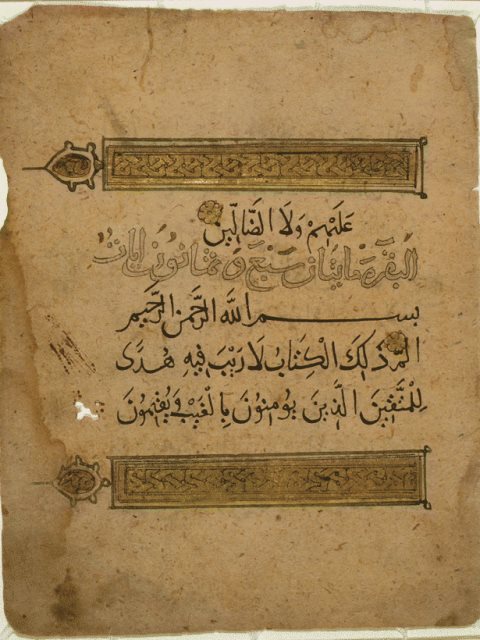 عَلَيْهِمْ وَلَا الضَّالِّينَ
البقرة مايتان وسبع وثمانون ايات
بسم الله الرَّحمن الرَّحيم
الم ذَلِكَ الْكِتَابُ لَا رَيْبَ فِيهِ هُدًى
لِلْمُتَّقِينَ الَّذِينَ يُومِنُونَ بِالْغَيْبِ وَيُقِيمُونَ